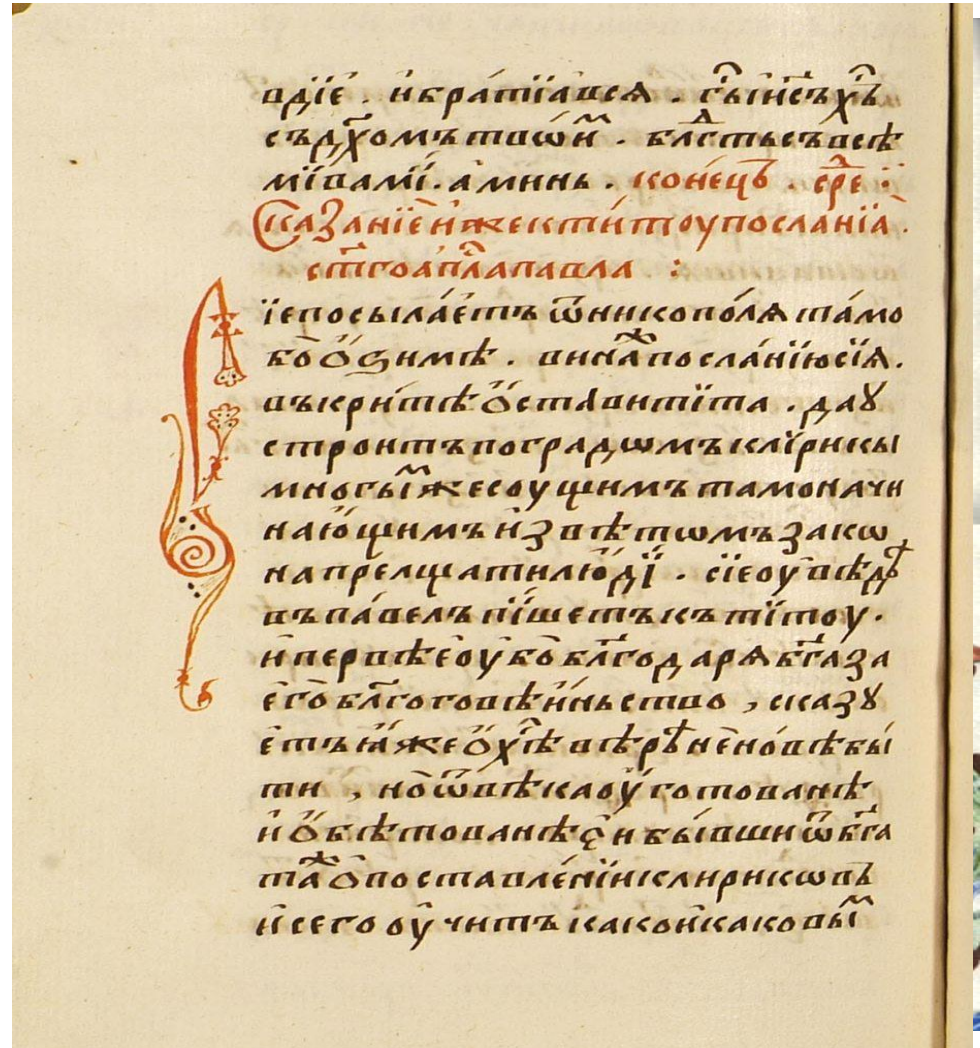 вдїе . и҆ бра́тїа̀ всѧ̀ . гⷭ҇ь і҆и҃съ хⷭ҇ъ
съ дх҃омъ твѡи́мⷨ . блгⷣть съ всѣ
мї ва́мї . а҆минь . коне́цъ . срⷣе :
Сказанїе и҆же к ти́тоу посланїа̀ .
ст҃го а҆пⷭ҇ла павла :
Сїе посыла́етъ ѿ никопо́лѧ та́мо
бо̀ ѻ҆ѕимѣ . вина́ жⷤ посла́нїю сїѧ̀ .
въ кри́тѣ ѻ҆стави тїта . да ꙋ
строитъ по градѡмъ клѷрикы
многы́мⷨ же соущимъ тамо начи
наю́щимъ и҆з вѣтѡмъ зако
на прелщати лю́дї . сїе оу҆вѣдⷣ
въ па́велъ пи́шетъ къ тїтоу .
и҆ первѣе оу҆бо̀ блг҃одарѧ̀ бг҃а за
е҆го̀ блг҃оговѣи́ньство , сказꙋ
етъ ꙗ҆́же ѻ҆ хрⷭ҇тѣ вѣрѣ не но́вѣ бы́
ти , но̀ ѿ вѣка оу҆готованѣ
и҆ ѻ҆бѣтованѣ є҆ѝ бы́вши ѿ бг҃а
та́ жⷤ ѻ҆ поставле́нїи клирикѡвъ
и҆ сего оу҆чи́тъ како и҆ каковы́мⷨ